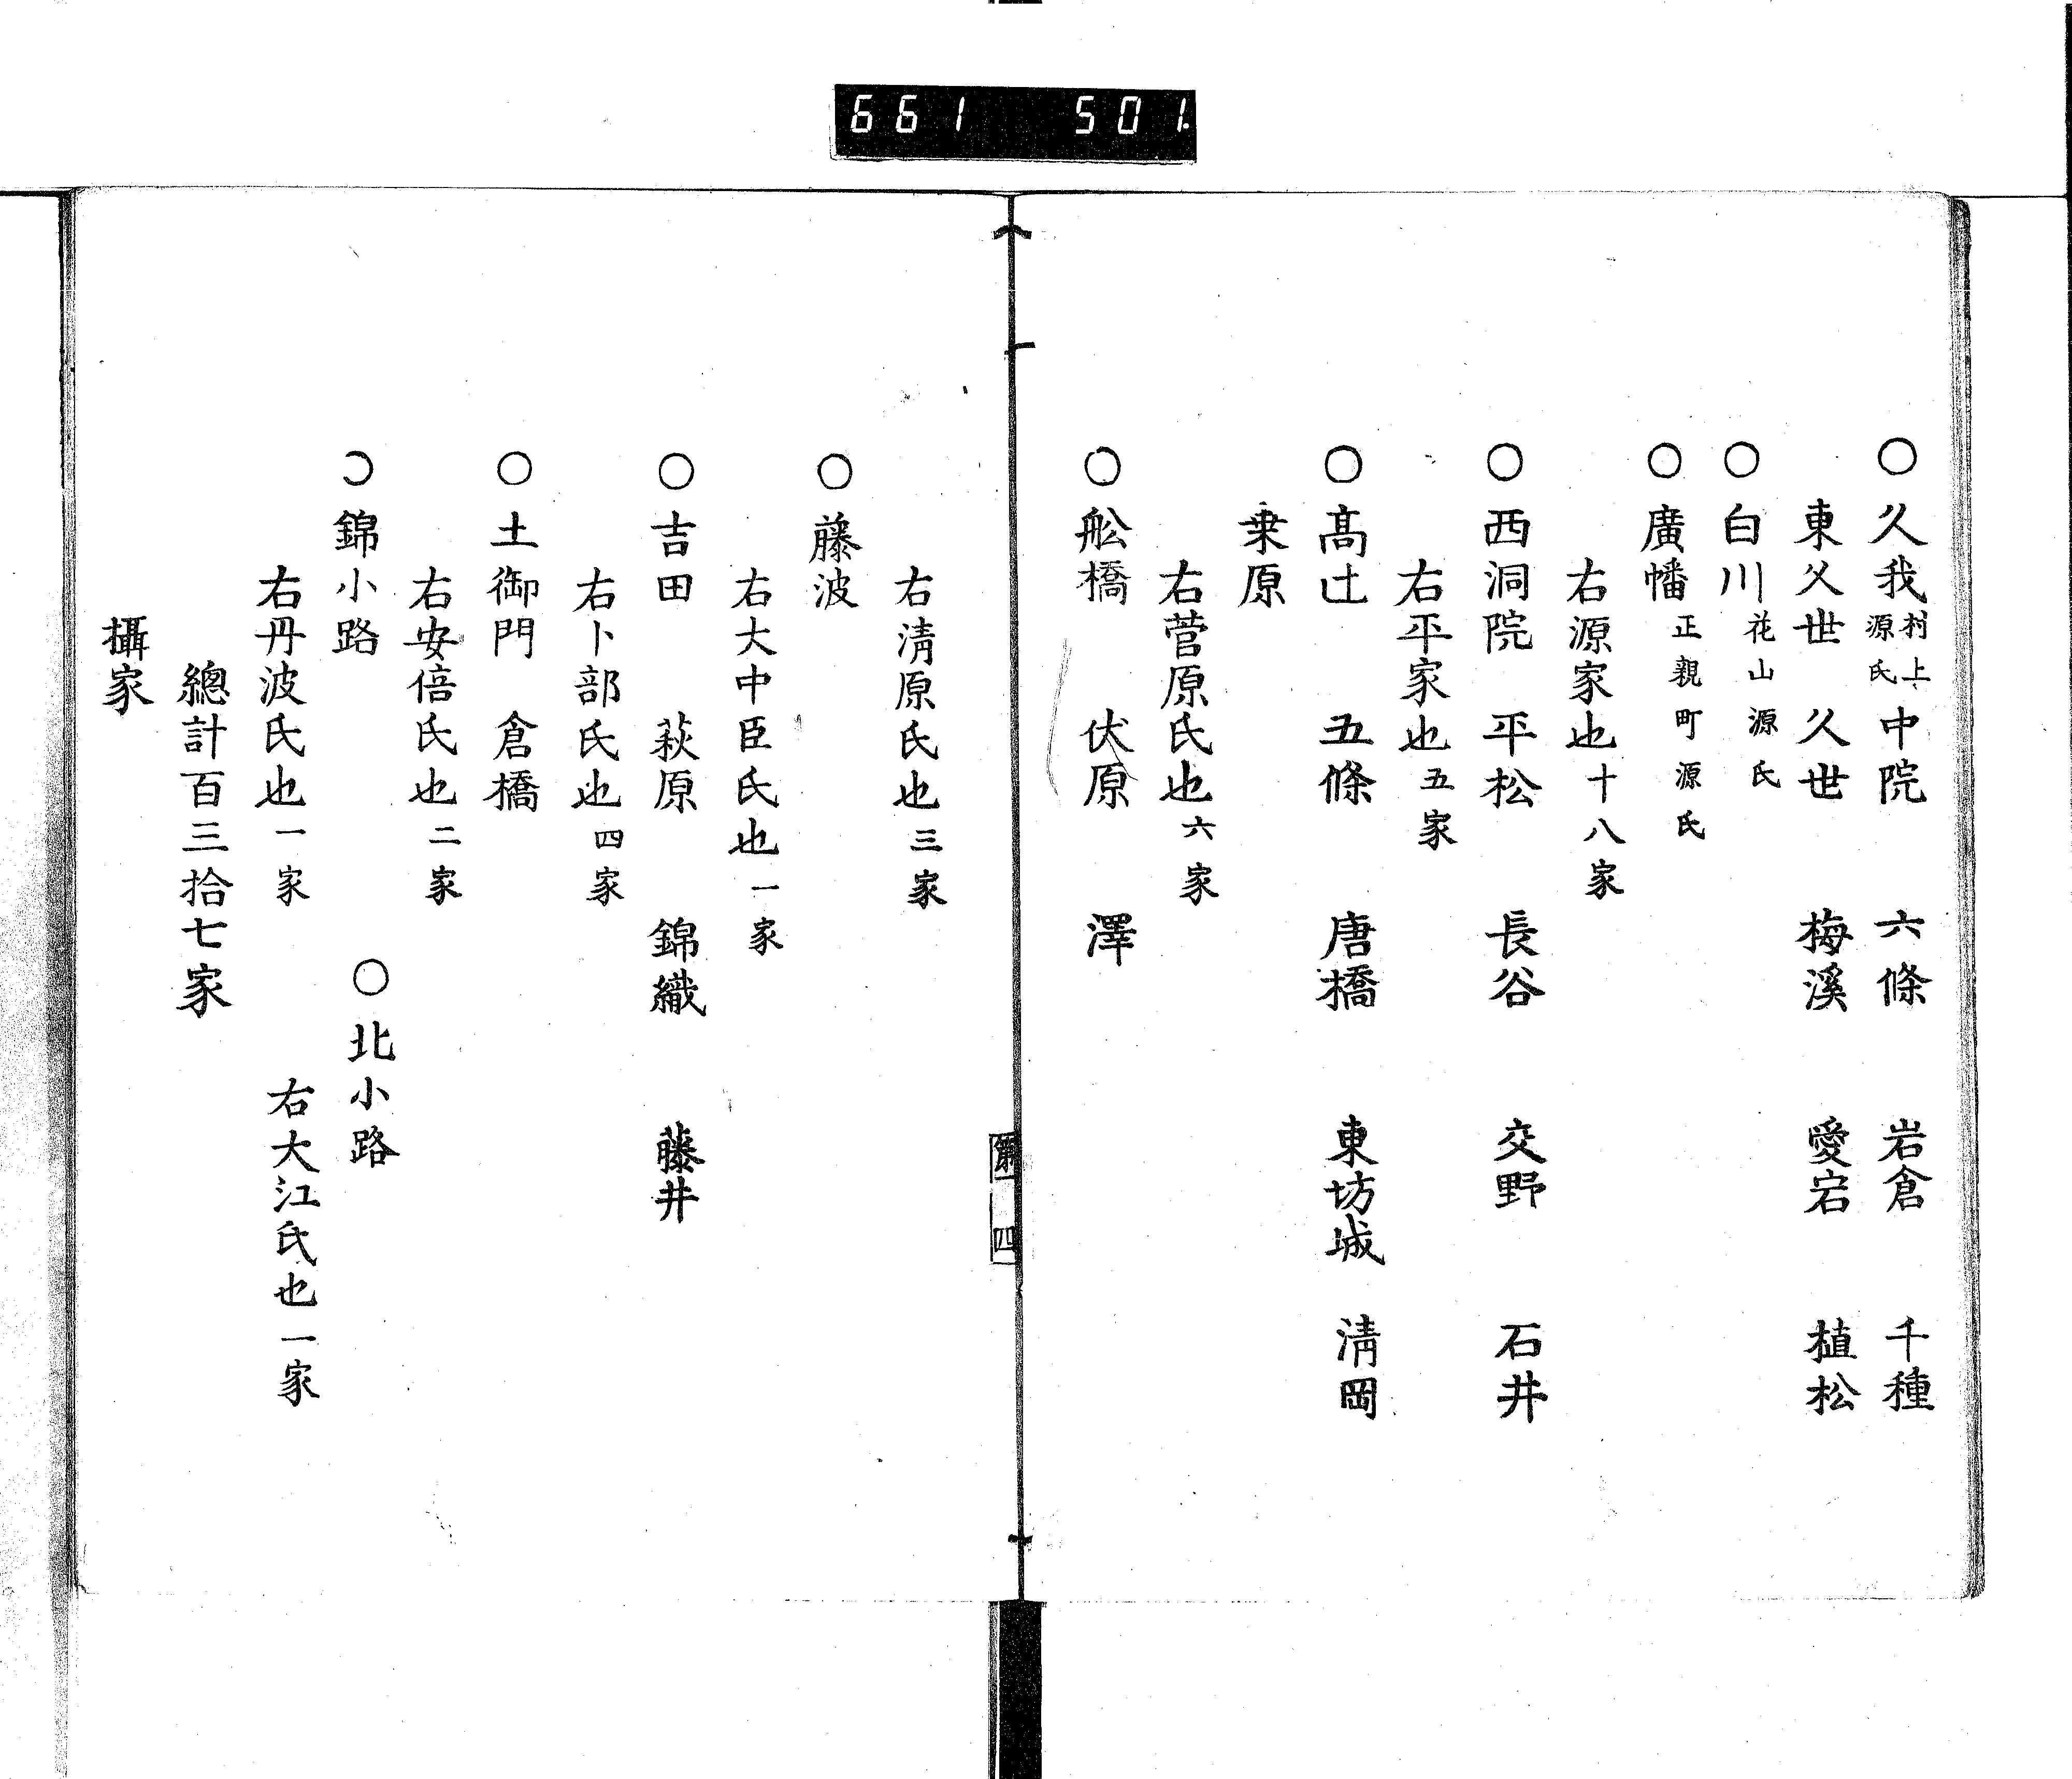 661 501.
○久我村上源氏 中院 六條 岩倉 千種
東久世 久世 梅溪 愛宕 植松
○白川花山源氏
○廣幡正親町源氏
右源家也十八家
○西洞院 平松 長谷 交野 石井
右平家也五家
○髙辻 五條 唐橋 東坊城 淸岡
桒原
右菅原氏也六家
○舩橋 伏原 澤
第一 四
右淸原氏也三家
○藤波
右大中臣氏也一家
○吉田 萩原 錦織 藤井
右卜部氏也四家
○土御門 倉橋
右安倍氏也二家
○錦小路 ○北小路
右丹波氏也一家 右大江氏也一家
總計百三拾七家
攝家